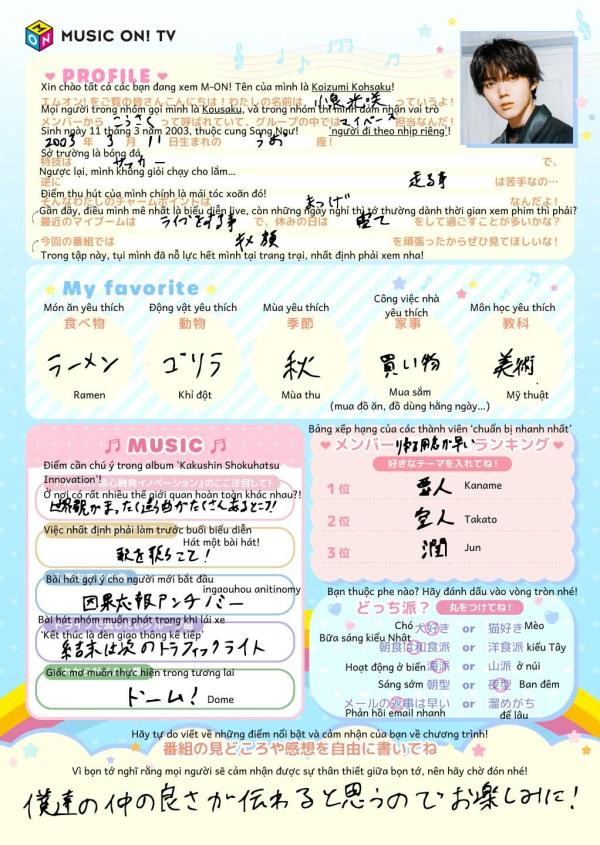 MUSIC ON! TV
PROFILE
Xin chào tất cả các bạn đang xem M-ON! Tên của mình là Koizumi Kohsaku!
エムオン!をご覧の皆さんこんにちは!わたしの名前は 小泉光咲 っていうよ!
Mọi người trong nhóm gọi mình là Kousaku, và trong nhóm thì mình đảm nhận vai trò
メンバーから こうさく って呼ばれていて、グループの中では マイペース 担当なんだ!
Sinh ngày 11 tháng 3 năm 2003, thuộc cung Song Ngư! 'người đi theo nhịp riêng'!
2003 年 3 月 11 日生まれの うお 座!
Sở trường là bóng đá,
特技は サッカー で、
Ngược lại, mình không giỏi chạy cho lắm...
逆に 走る事 は苦手なの…
Điểm thu hút của mình chính là mái tóc xoăn đó!
そんなわたしのチャームポイントは まつげ なんだよ!
Gần đây, điều mình mê nhất là biểu diễn live, còn những ngày nghỉ thì tớ thường dành thời gian xem phim thì phải?
最近のマイブームは ライブをする事 で、休みの日は 映画 をして過ごすことが多いかな?
今回の番組では キメ顔 を頑張ったからぜひ見てほしいな!
Trong tập này, tụi mình đã nỗ lực hết mình tại trang trại, nhất định phải xem nha!
My favorite
Món ăn yêu thích Động vật yêu thích Mùa yêu thích Công việc nhà yêu thích Môn học yêu thích
食べ物 動物 季節 家事 教科
ラーメン ゴリラ 秋 買い物 美術
Ramen Khỉ đột Mùa thu Mua sắm Mỹ thuật
(mua đồ ăn, đồ dùng hằng ngày...)
MUSIC
Điểm cần chú ý trong album 'Kakushin Shokuhatsu Innovation'!
核心触発イノベーション』のここ注目して!
Ở nơi có rất nhiều thế giới quan hoàn toàn khác nhau?!
世界観がまったく違う曲がたくさんあるところ!
Việc nhất định phải làm trước buổi biểu diễn
Hát một bài hát!
歌を歌うこと!
Bài hát gợi ý cho người mới bắt đầu
ingaouhou anitinomy
因果応報アンチノミー
Bài hát nhóm muốn phát trong khi lái xe
'Kết thúc là đèn giao thông kế tiếp'
結末は次のトラフィックライト
Giấc mơ muốn thực hiện trong tương lai
ドーム! Dome
Bảng xếp hạng của các thành viên 'chuẩn bị nhanh nhất'
メンバー 準備が早い ランキング
好きなテーマを入れてね!
1位 要人 Kaname
2位 空人 Takato
3位 潤 Jun
Bạn thuộc phe nào? Hãy đánh dấu vào vòng tròn nhé!
どっち派? 丸をつけてね!
Chó 犬好き or 猫好き Mèo
Bữa sáng kiểu Nhật 朝食は和食派 or 洋食派 kiểu Tây
Hoạt động ở biển 海派 or 山派 ở núi
Sáng sớm 朝型 or 夜型 Ban đêm
メールの返事は早い or 溜めがち
Phản hồi email nhanh để lâu
Hãy tự do viết về những điểm nổi bật và cảm nhận của bạn về chương trình!
番組の見どころや感想を自由に書いてね
Vì bọn tớ nghĩ rằng mọi người sẽ cảm nhận được sự thân thiết giữa bọn tớ, nên hãy chờ đón nhé!
僕達の仲の良さが伝わると思うのでお楽しみに!